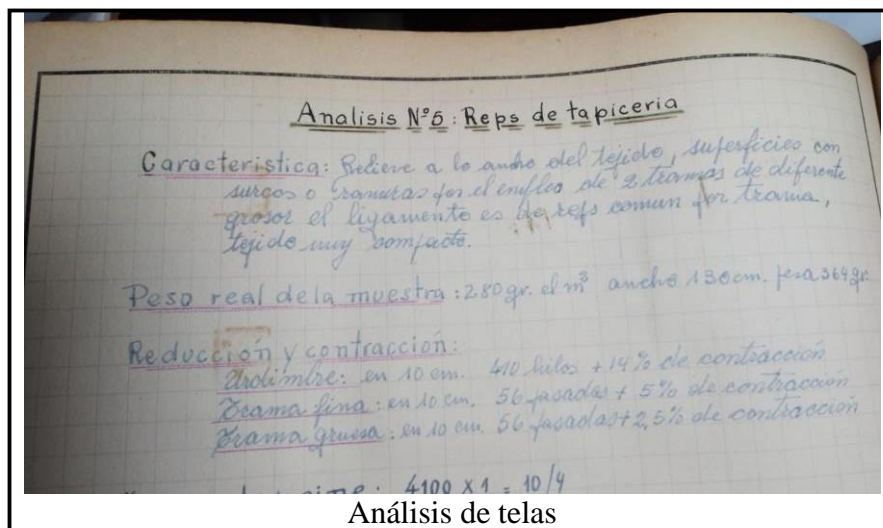 Analisis Nº5: Reps de tapiceria
Caracteristica: Relieve a lo ancho del tejido, superficies con
surcos o ranuras por el empleo de 2 tramas de diferente
grosor el ligamento es de reps comun por trama,
tejido muy compacto.
Peso real dela muestra: 280gr. el m³ ancho 130cm. pesa 364gr.
Reducción y contracción:
Urdimbre: en 10 cm. 410 hilos + 14% de contracción
Trama fina: en 10 cm. 56 pasadas + 5% de contracción
Trama gruesa: en 10 cm. 56 pasadas + 2,5% de contracción
4100 x 1 = 10/4
Análisis de telas